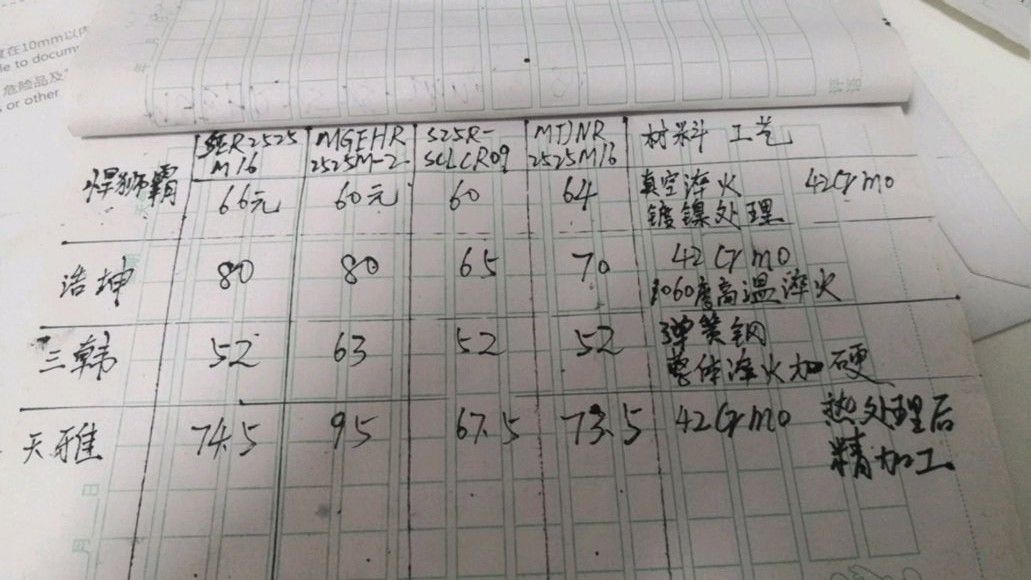 度在10mm以内
le to docum
危险品及
s or other
R2525 MGEHR S25R- MTJNR 材料 工艺
M16 2525M-2 SCLCR09 2525M16
悍狮霸 66元 60元 60 64 真空淬火 42Crmo
镀镍处理
浩坤 80 80 65 70 42Crmo
1060度高温淬火
三韩 52 63 52 52 弹簧钢
整体淬火加硬
天雅 74.5 95 67.5 73.5 42Crmo 热处理后
精加工